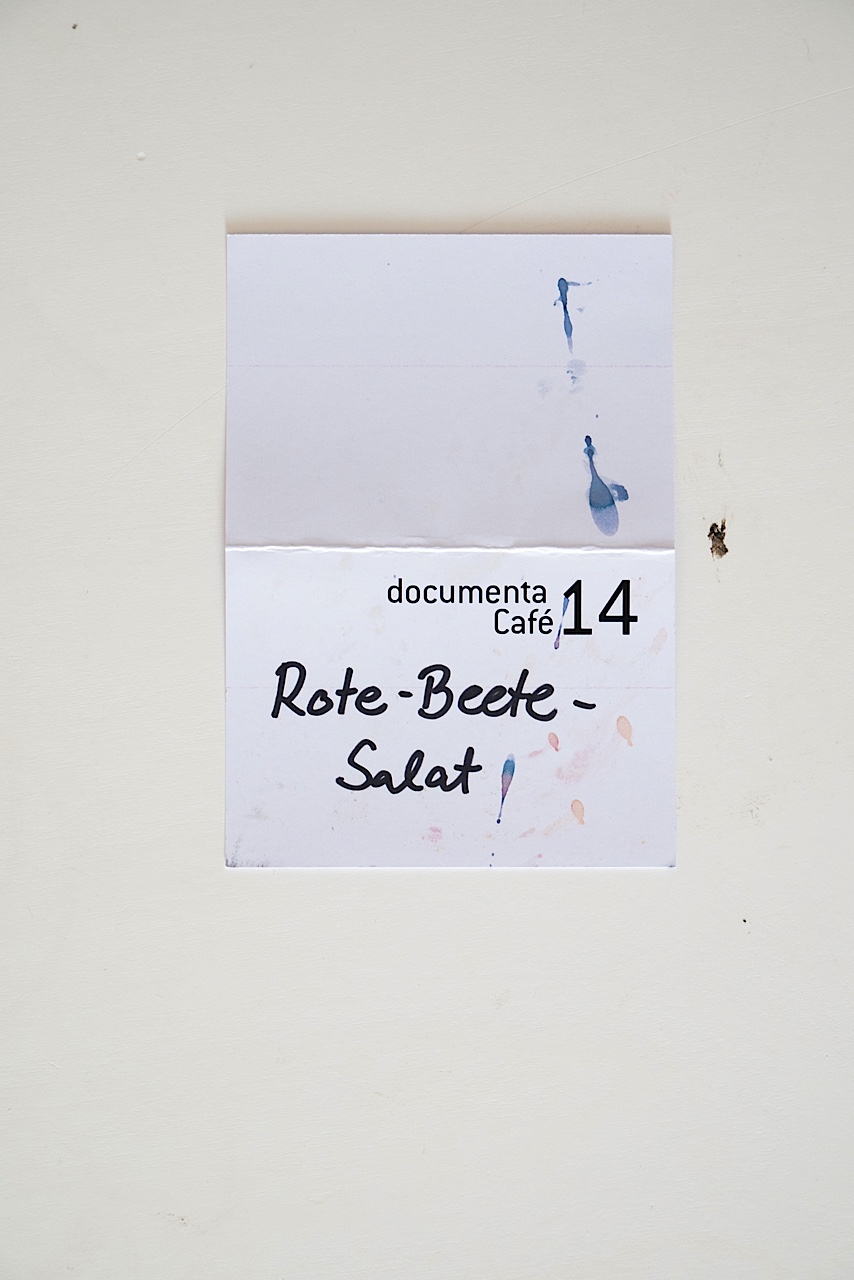 documenta
Café 14
Rote-Beete-
Salat